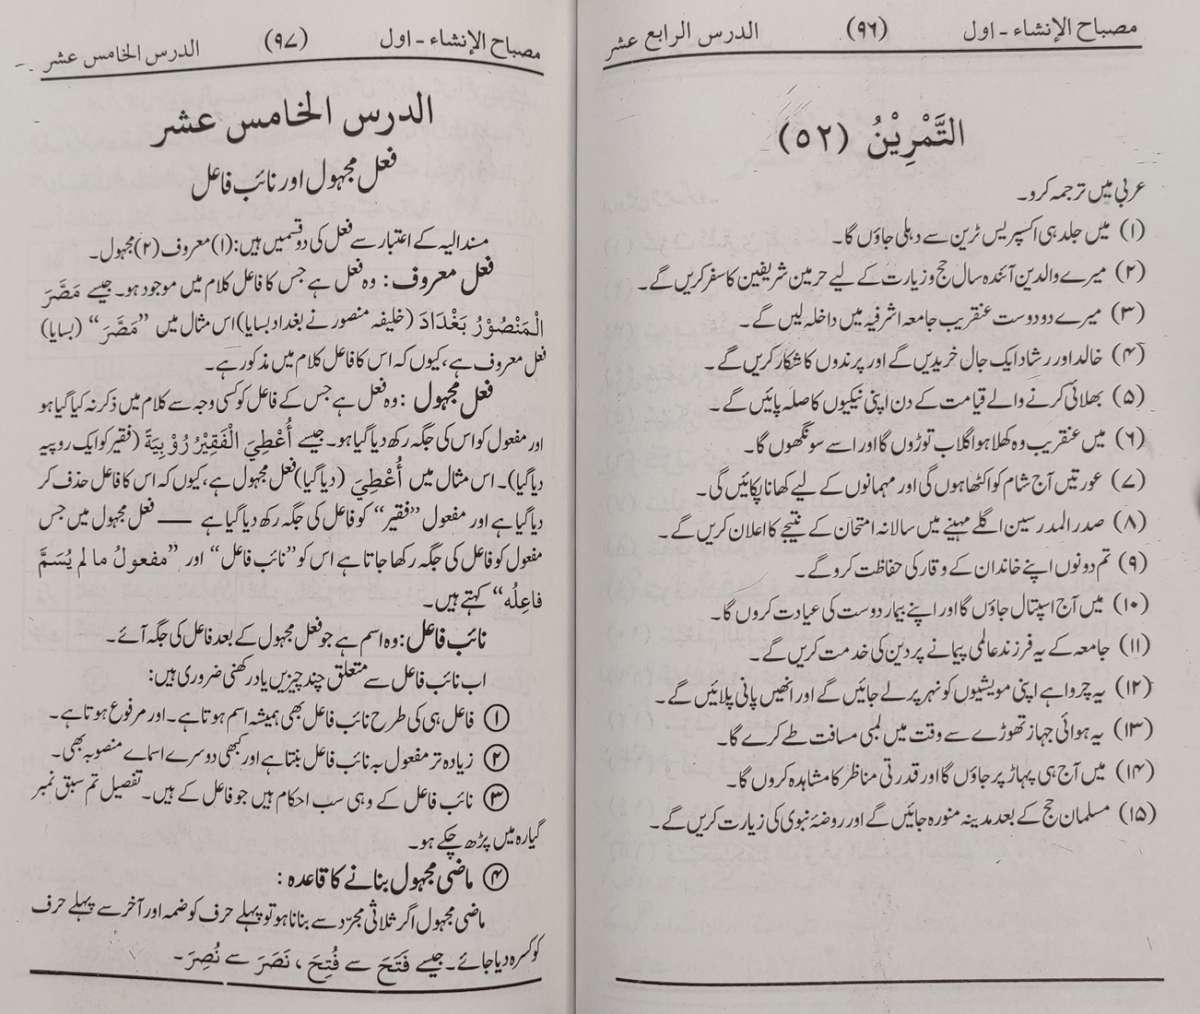 مصباح الإنشاء - اول (۹۶) الدرس الرابع عشر
التَّمْرِيْنُ (۵۲)
عربی میں ترجمہ کرو۔
(۱) میں جلد ہی اکسپریس ٹرین سے دہلی جاؤں گا۔
(۲) میرے والدین آئندہ سال حج و زیارت کے لیے حرمین شریفین کا سفر کریں گے۔
(۳) میرے دو دوست عنقریب جامعہ اشرفیہ میں داخلہ لیں گے۔
(۴) خالد اور رشاد ایک جال خریدیں گے اور پرندوں کا شکار کریں گے۔
(۵) بھلائی کرنے والے قیامت کے دن اپنی نیکیوں کا صلہ پائیں گے۔
(۶) میں عنقریب وہ کھلا ہوا گلاب توڑوں گا اور اسے سونگھوں گا۔
(۷) عورتیں آج شام کو اکٹھا ہوں گی اور مہمانوں کے لیے کھانا پکائیں گی۔
(۸) صدر المدرسین اگلے مہینے میں سالانہ امتحان کے نتیجے کا اعلان کریں گے۔
(۹) تم دونوں اپنے خاندان کے وقار کی حفاظت کرو گے۔
(۱۰) میں آج اسپتال جاؤں گا اور اپنے بیمار دوست کی عیادت کروں گا۔
(۱۱) جامعہ کے یہ فرزند عالمی پیمانے پر دین کی خدمت کریں گے۔
(۱۲) یہ چرواہے اپنی مویشیوں کو نہر پر لے جائیں گے اور انھیں پانی پلائیں گے۔
(۱۳) یہ ہوائی جہاز تھوڑے سے وقت میں لمبی مسافت طے کرے گا۔
(۱۴) میں آج ہی پہاڑ پر جاؤں گا اور قدرتی مناظر کا مشاہدہ کروں گا۔
(۱۵) مسلمان حج کے بعد مدینہ منورہ جائیں گے اور روضۂ نبوی کی زیارت کریں گے۔
مصباح الإنشاء - اول (۹۷) الدرس الخامس عشر
الدرس الخامس عشر
فعل مجہول اور نائب فاعل
مسند الیہ کے اعتبار سے فعل کی دو قسمیں ہیں: (۱) معروف (۲) مجہول۔
فعل معروف: وہ فعل ہے جس کا فاعل کلام میں موجود ہو۔ جیسے مَصَّرَ
الْمَنْصُوْرُ بَغْدَادَ (خلیفہ منصور نے بغداد بسایا) اس مثال میں ”مَصَّرَ“ (بسایا)
فعل معروف ہے، کیوں کہ اس کا فاعل کلام میں مذکور ہے۔
فعل مجہول: وہ فعل ہے جس کے فاعل کو کسی وجہ سے کلام میں ذکر نہ کیا گیا ہو
اور مفعول کو اس کی جگہ رکھ دیا گیا ہو۔ جیسے أُعْطِيَ الْفَقِيْرُ رُوْبِيَةً (فقیر کو ایک روپیہ
دیا گیا)۔ اس مثال میں أُعْطِيَ (دیا گیا) فعل مجہول ہے، کیوں کہ اس کا فاعل حذف کر
دیا گیا ہے اور مفعول ”فقیر“ کو فاعل کی جگہ رکھ دیا گیا ہے — فعل مجہول میں جس
مفعول کو فاعل کی جگہ رکھا جاتا ہے اس کو ”نائب فاعل“ اور ”مفعولُ ما لم يُسَمَّ
فاعِلُه“ کہتے ہیں۔
نائب فاعل: وہ اسم ہے جو فعل مجہول کے بعد فاعل کی جگہ آئے۔
اب نائب فاعل سے متعلق چند چیزیں یاد رکھنی ضروری ہیں:
① فاعل ہی کی طرح نائب فاعل بھی ہمیشہ اسم ہوتا ہے۔ اور مرفوع ہوتا ہے۔
② زیادہ تر مفعول بہ نائب فاعل بنتا ہے اور کبھی دوسرے اسمائے منصوبہ بھی۔
③ نائب فاعل کے وہی سب احکام ہیں جو فاعل کے ہیں۔ تفصیل تم سبق نمبر
گیارہ میں پڑھ چکے ہو۔
④ ماضی مجہول بنانے کا قاعدہ:
ماضی مجہول اگر ثلاثی مجرّد سے بنانا ہو تو پہلے حرف کو ضمہ اور آخر سے پہلے حرف
کو کسرہ دیا جائے۔ جیسے فَتَحَ سے فُتِحَ، نَصَرَ سے نُصِرَ۔